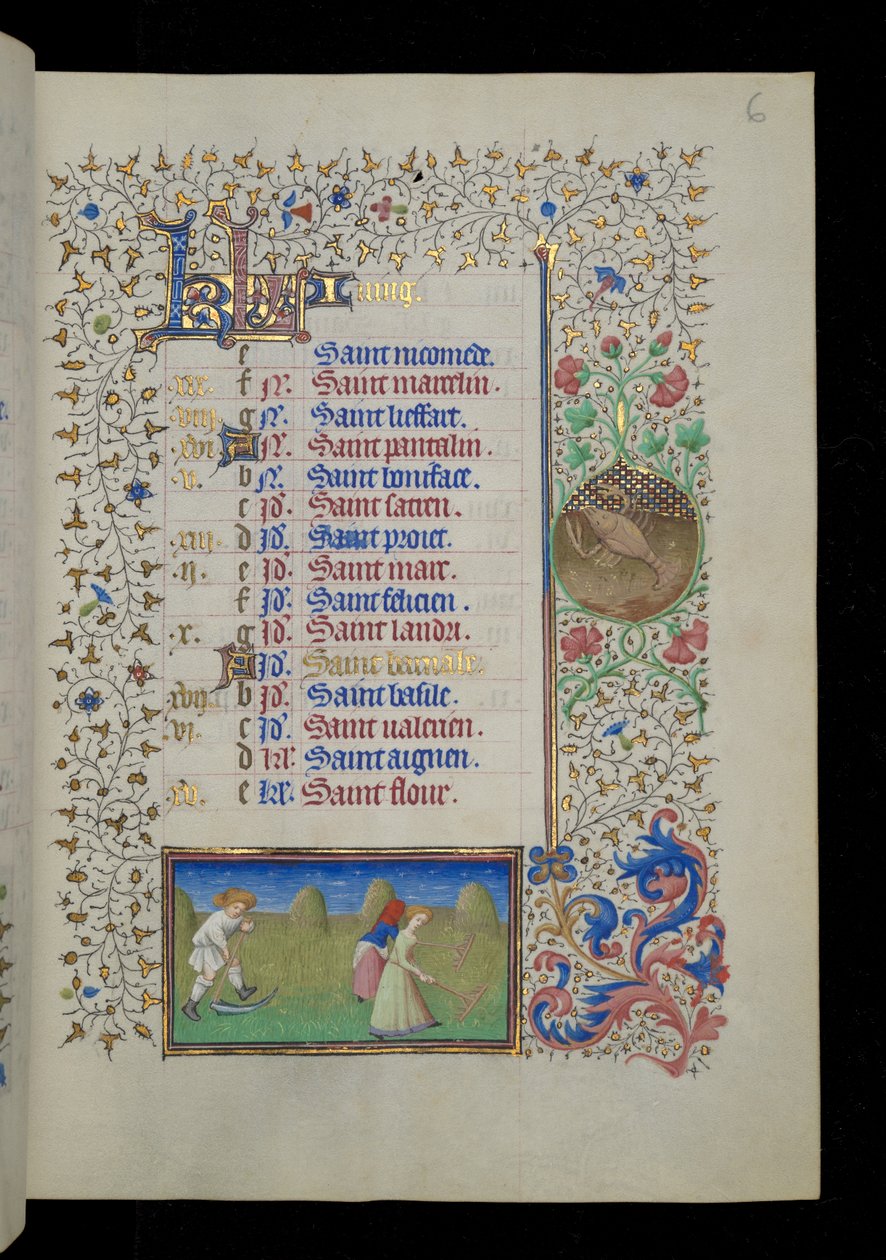 6
KL Iuing.
e Saint nicomede.
.xix. f N. Saint marcelin.
.viii. g N. Saint lieffart.
.xvi. A N. Saint pantalin.
.v. b N. Saint boniface.
c Id. Saint satren.
.xiii. d Id. Saint proiet.
.ii. e Id. Saint marc.
f Id. Saint felicien.
.x. g Id. Saint landri.
A Id. Saint barnale.
.xviii. b Id. Saint basile.
.vi. c Id. Saint ualerien.
d kl. Saint aignen.
.xv. e kl. Saint flour.